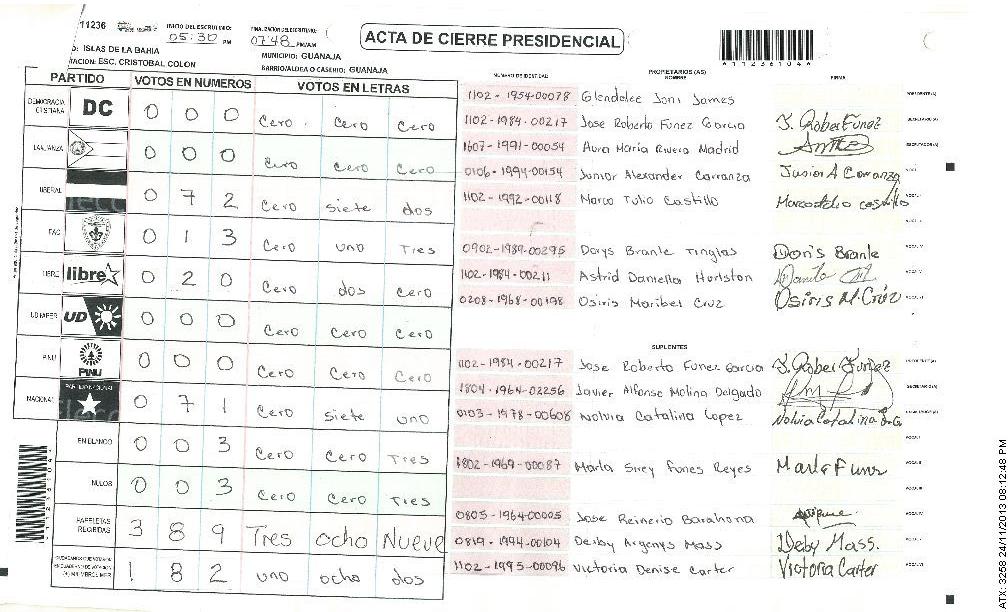 11236 INICIO DEL ESCRUTINIO: 05:30 PM FINALIZACION DEL ESCRUTINIO: 07:48 PM/AM
ACTA DE CIERRE PRESIDENCIAL
O: ISLAS DE LA BAHIA MUNICIPIO: GUANAJA
TACION: ESC. CRISTOBAL COLON BARRIO/ALDEA O CASERIO: GUANAJA
PARTIDO VOTOS EN NUMEROS VOTOS EN LETRAS
DEMOCRACIA CRISTIANA DC 0 0 0 Cero Cero Cero
ALIANZA 0 0 0 Cero Cero Cero
LIBERAL 0 7 2 Cero siete dos
PAC 0 1 3 Cero uno Tres
LIBRE libre 0 2 0 Cero dos Cero
UD UD 0 0 0 Cero Cero Cero
PINU PINU 0 0 0 Cero Cero Cero
NACIONAL PARTIDO NACIONAL 0 7 1 Cero siete uno
EN BLANCO 0 0 3 Cero Cero Tres
NULOS 0 0 3 Cero Cero Tres
PAPELETAS RECIBIDAS 3 8 9 Tres ocho Nueve
1 8 2 uno ocho dos
NUMERO DE IDENTIDAD PROPIETARIOS (AS) NOMBRE FIRMA
1102-1954-00078 Glendalee Joni James PRESIDENTE(A)
1102-1984-00217 Jose Roberto Funez Garcia J. Rober Funez SECRETARIO(A)
1607-1991-00054 Aura Maria Rivera Madrid ESCRUTADOR(A)
0106-1994-00154 Junior Alexander Carranza Junior A Carranza
1102-1992-00118 Marco Tulio Castillo Marco tulio castillo
0902-1989-00295 Dorys Brante Tinglas Doris Brante
1102-1984-00211 Astrid Daniella Hurlston
0208-1968-00198 Osiris Maribel Cruz Osiris M. Cruz
SUPLENTES
1102-1984-00217 Jose Roberto Funez Garcia J. Rober Funez
1804-1964-02256 Javier Alfonso Molina Delgado SECRETARIO(A)
0103-1978-00608 Nolvia Catalina Lopez Nolvia Catalina
1802-1969-00087 Marla Sirey Funes Reyes Marla Funez
0805-1964-00005 Jose Reinerio Barahona
0819-1994-00104 Deiby Argenys Mass Deby Mass.
1102-1995-00096 Victoria Denise Carter Victoria Carter
ATX: 3258 24/11/2013 08:12:48 PM